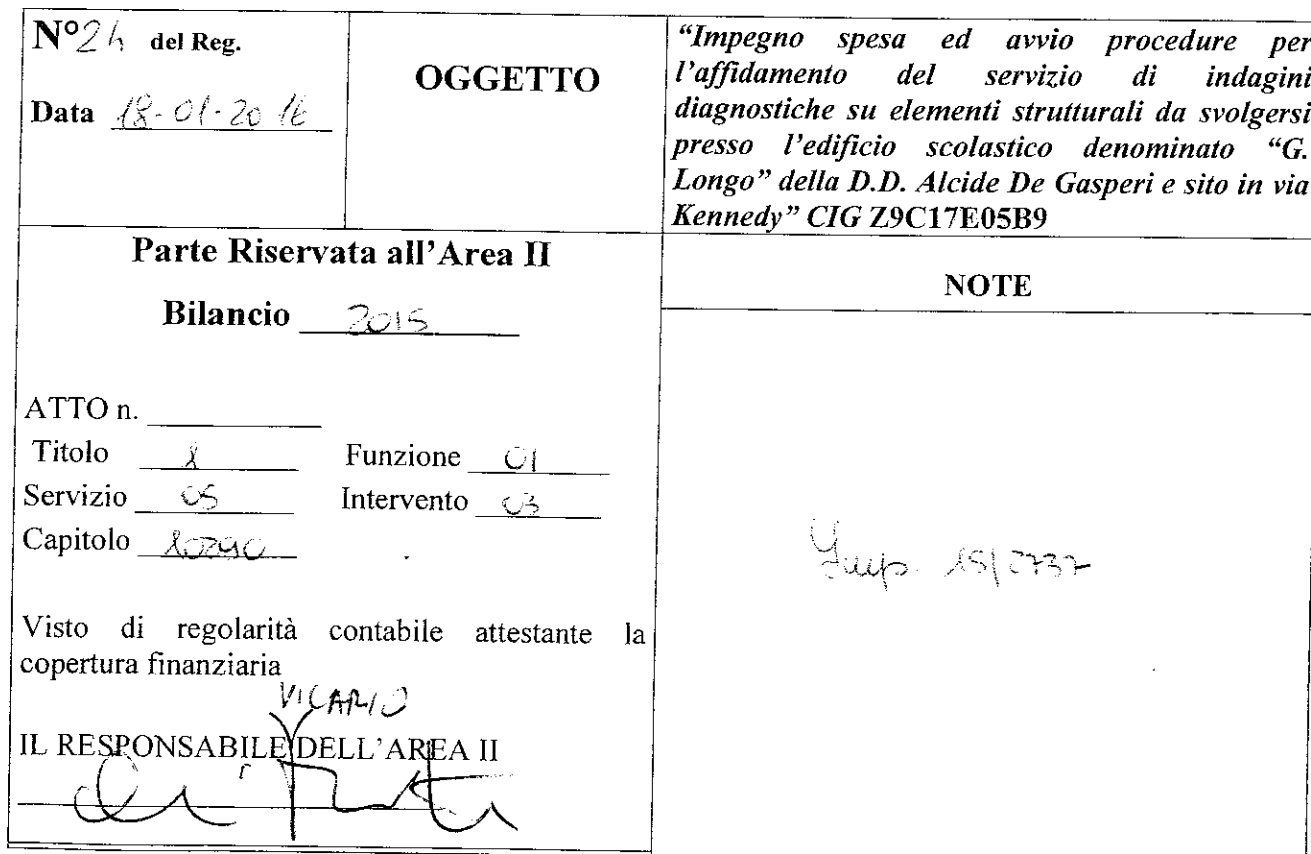 N° 24 del Reg.
Data 18-01-2016
OGGETTO
“Impegno spesa ed avvio procedure per
l’affidamento del servizio di indagini
diagnostiche su elementi strutturali da svolgersi
presso l’edificio scolastico denominato “G.
Longo” della D.D. Alcide De Gasperi e sito in via
Kennedy” CIG Z9C17E05B9
Parte Riservata all’Area II
Bilancio 2015
ATTO n.
Titolo 1 Funzione 01
Servizio 05 Intervento 03
Capitolo 10290
Visto di regolarità contabile attestante la
copertura finanziaria
VICARIO
IL RESPONSABILE DELL’AREA II
NOTE
Imp. 15/2737